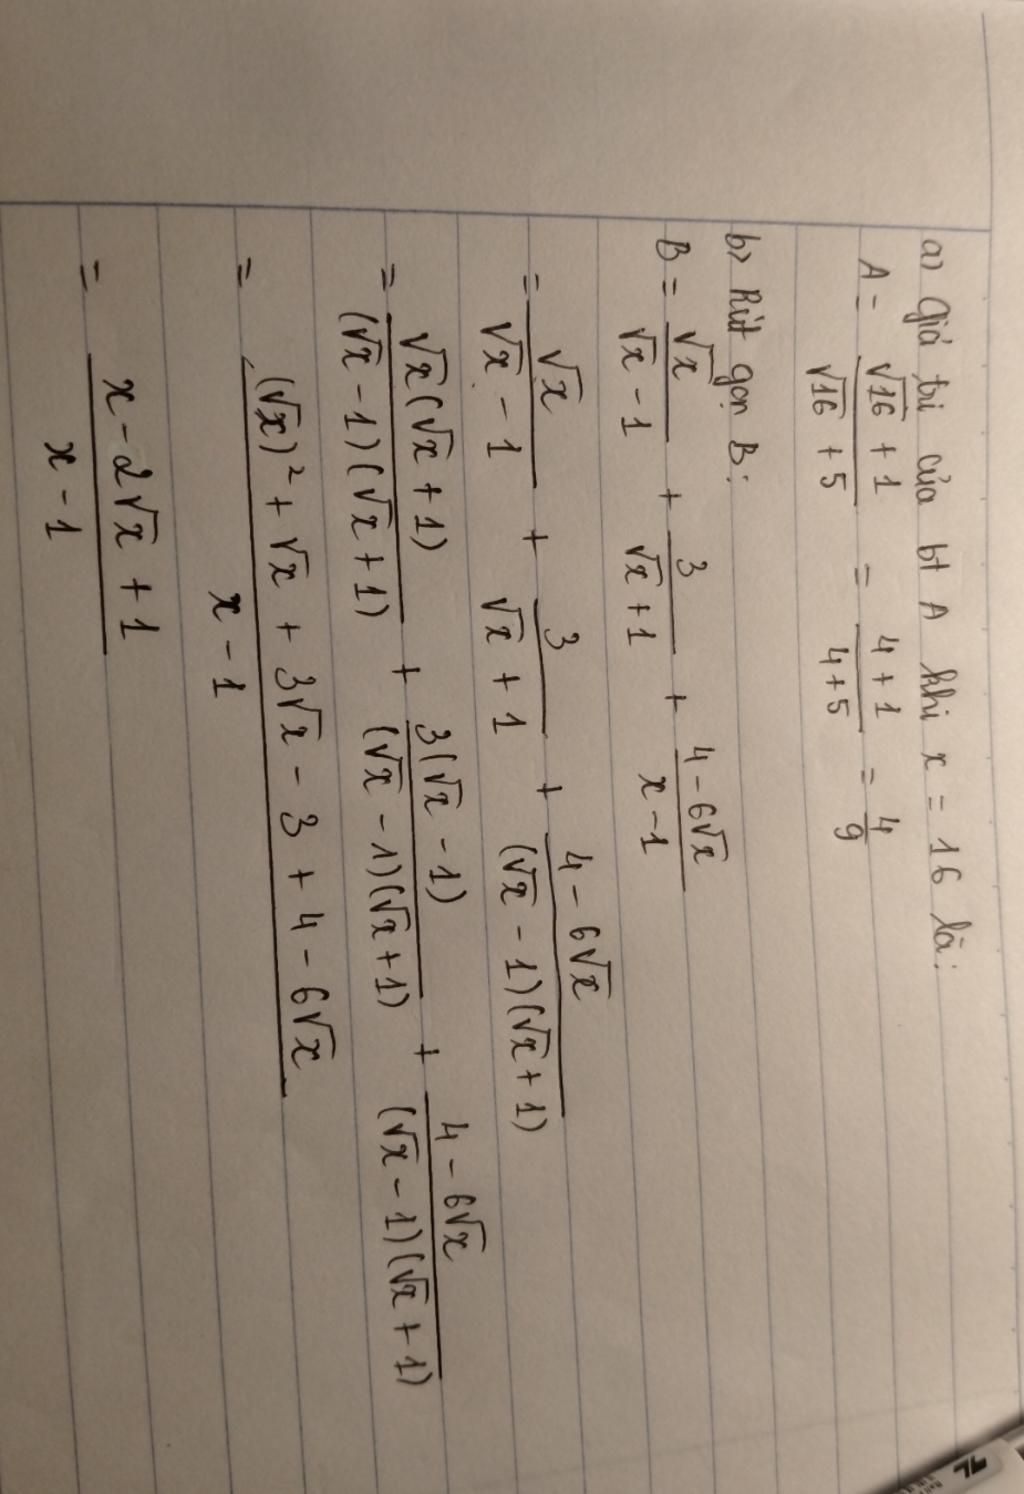 a) Giá trị của bt A khi x = 16 là:
A = (√16 + 1)/(√16 + 5) = (4 + 1)/(4 + 5) = 4/9
b) Rút gọn B:
B = √x/(√x - 1) + 3/(√x + 1) + (4 - 6√x)/(x - 1)
= √x/(√x - 1) + 3/(√x + 1) + (4 - 6√x)/((√x - 1)(√x + 1))
= √x(√x + 1)/((√x - 1)(√x + 1)) + 3(√x - 1)/((√x - 1)(√x + 1)) + (4 - 6√x)/((√x - 1)(√x + 1))
= ((√x)² + √x + 3√x - 3 + 4 - 6√x)/(x - 1)
= (x - 2√x + 1)/(x - 1)